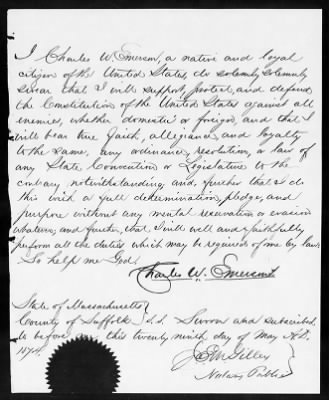 I Charles W. Emerson, a native and loyal
citizen of the United States, do solemnly solemnly
swear that I will support, protect, and defend
the Constitution of the United States against all
enemies, whether domestic or foreign, and that I
will bear true faith, allegiance, and loyalty
to the same, any ordinance, resolution, or law of
any State, Convention or Legislative to the
contrary notwithstanding, and further that I do
this with a full determination, pledge, and
purpose without any mental reservation or evasion
whatever, and further, that I will well and faithfully
perform all the duties which may be required of me by law.
So help me God.
Charles W. Emerson
State of Massachusetts
County of Suffolk S.S. Sworn and subscribed
to before this twenty ninth day of May A.D.
1874.
Notary Public